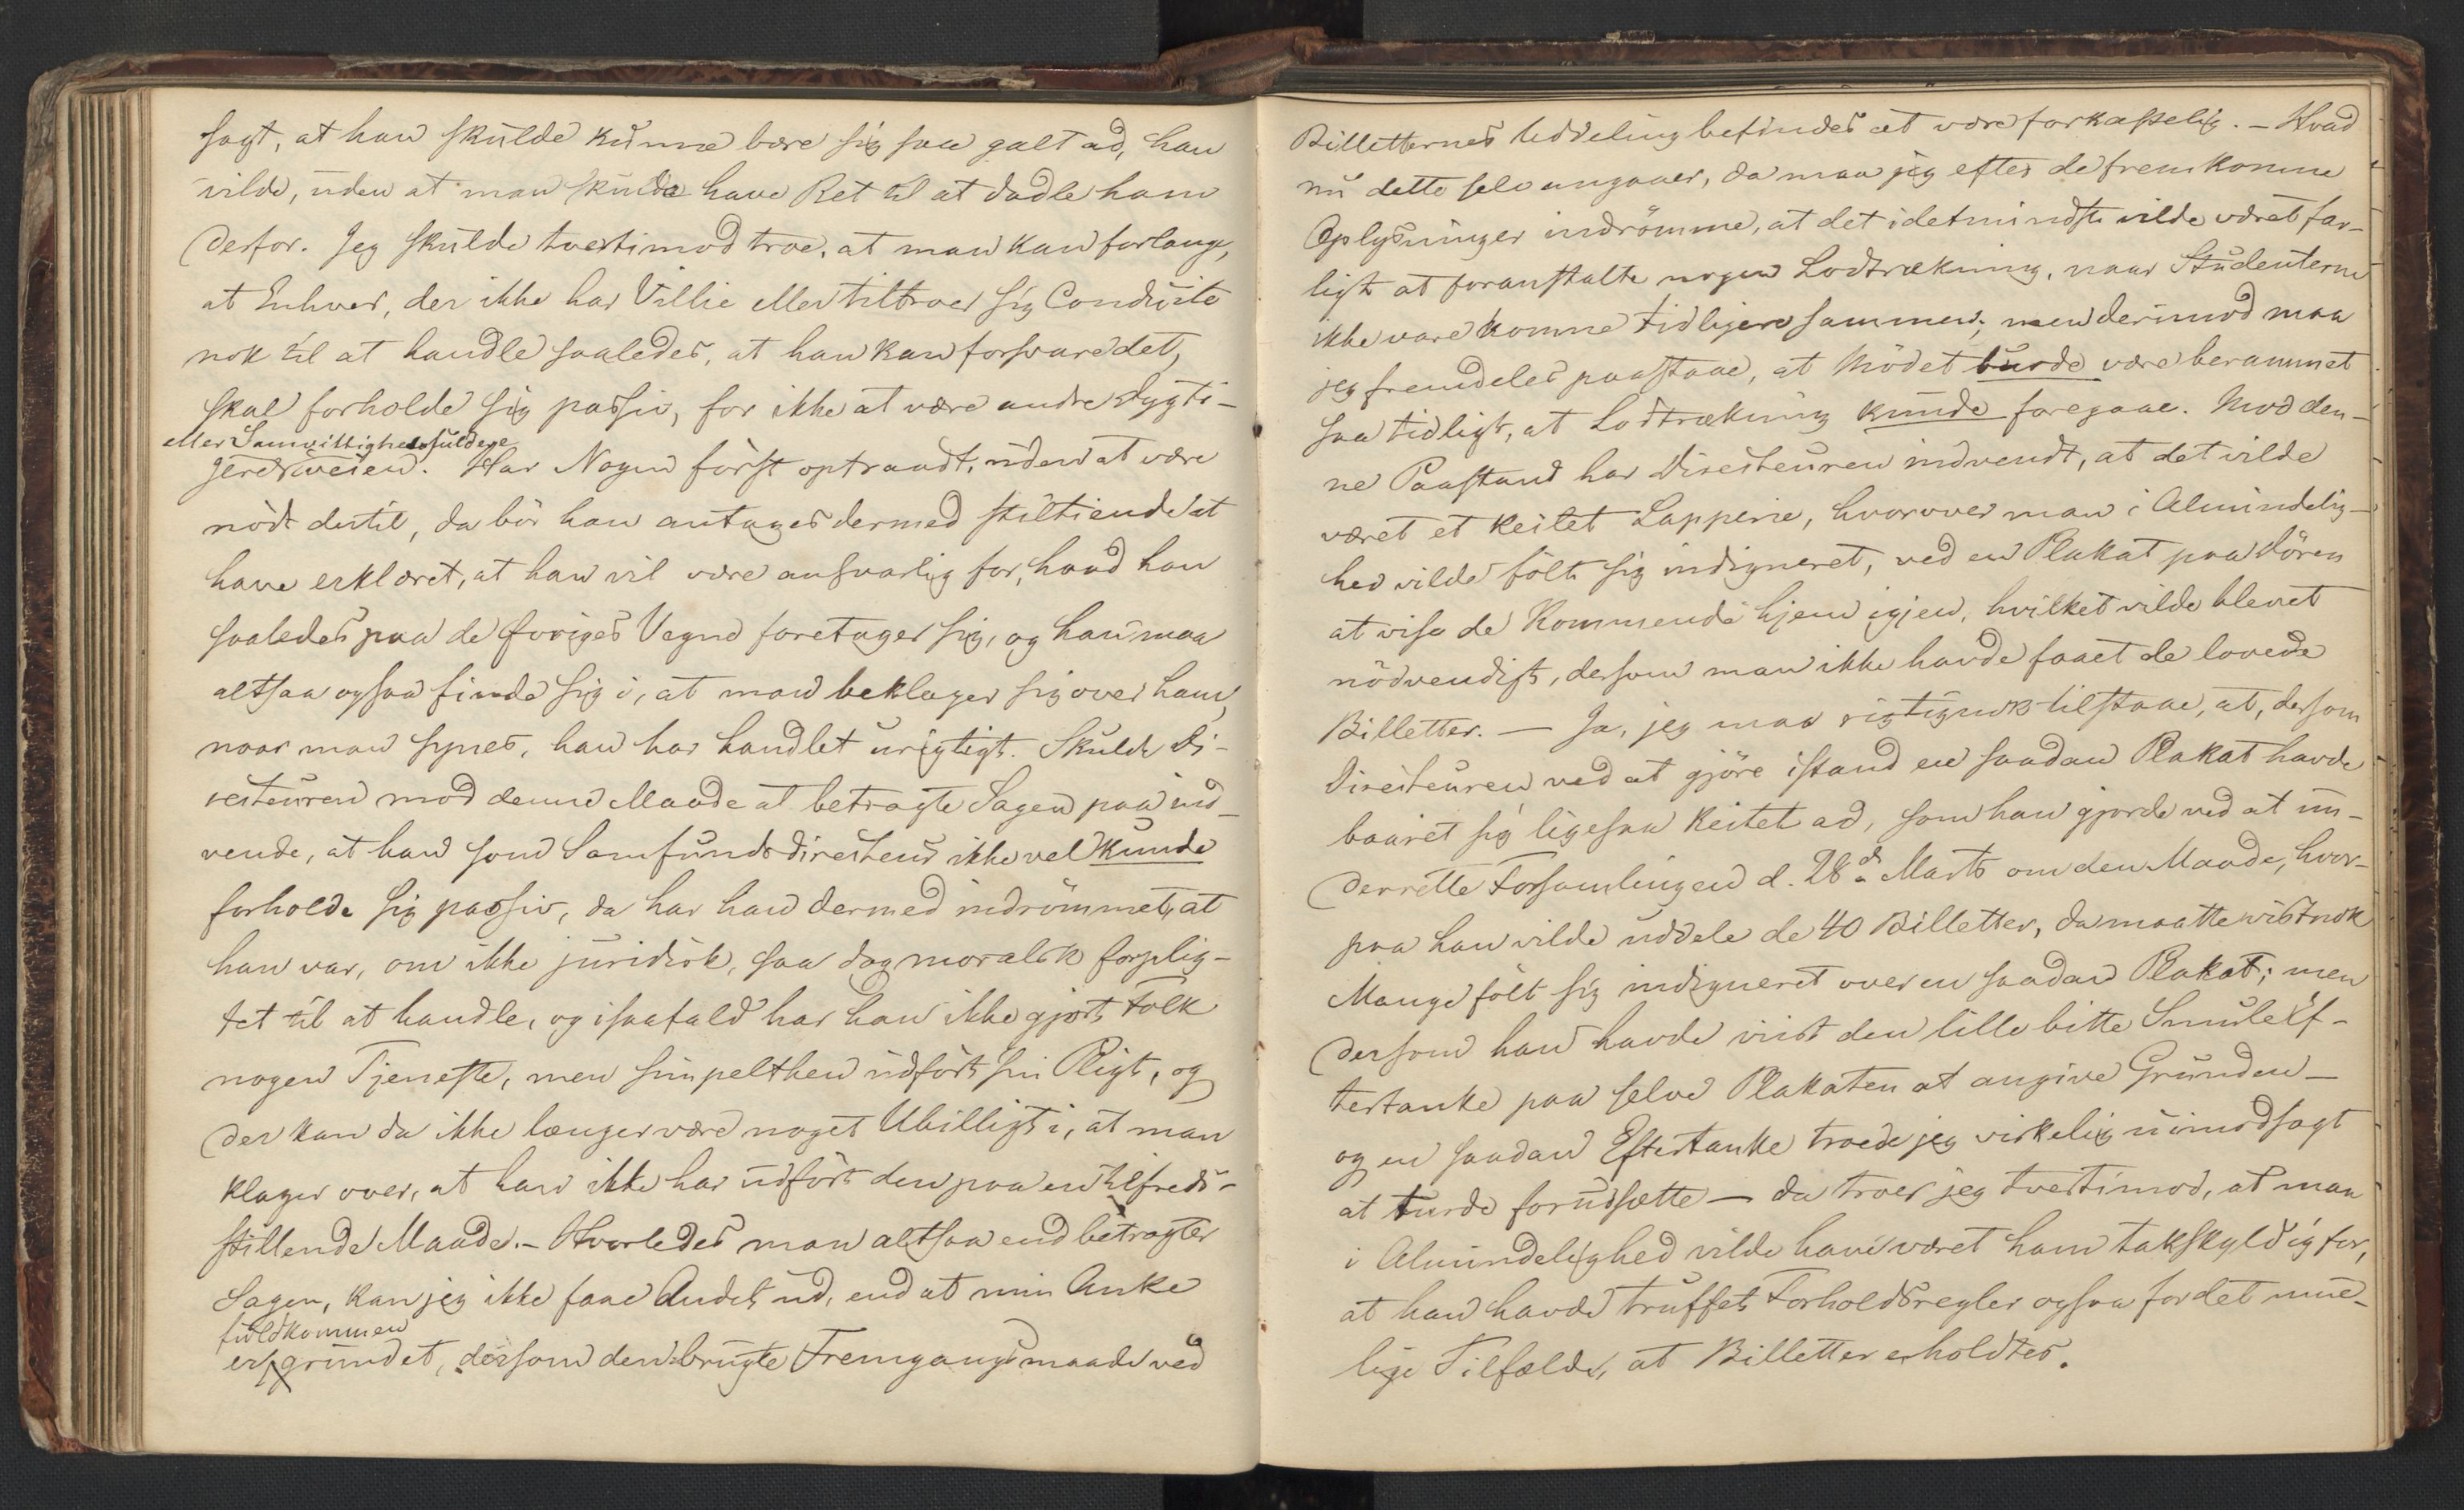 sagt, at han skulde kunne bære sig saa galt ad, han
vilde, uden at man skulde have Ret til at dadle ham
derfor. Jeg skulde tvertimod troe, at man kan forlange,
at Enhver, der ikke har Villie eller tiltroer sig Conduite
nok til at handle saaledes, at han kan forsvare det,
skal forholde sig passiv, for ikke at være andre Dygti-
eller Samvittighedsfuldere
gere i Veien. Har Nogen först optraadt, uden at være
nödt dertil, da bör han antages dermed stiltiende at
have erklæret, at han vil være ansvarlig for, hvad han
saaledes paa de Övriges Vegne foretager sig, og han maa
altsaa ogsaa finde sig i, at man beklager sig over ham,
naar man synes, han har handlet urigtigt. Skulde Di-
recteuren mod denne Maade at betragte Sagen paa ind-
vende, at han som Samfundsdirecteur ikke vel kunde
forholde sig passiv, da har han dermed indrömmet, at
han var, om ikke juridisk, saa dog moralsk forplig-
tet til at handle, og isaafald har han ikke gjort Folk
nogen Tjeneste, men simpelthen udfört sin Pligt, og
der kan da ikke længer være noget Ubilligt i, at man
klager over, at han ikke har udfört den paa en tilfreds-
stillende Maade. – Hvorledes man altsaa end betragter
Sagen, kan jeg ikke faae Andet ud, end at min Anke
fuldkommen
er grundet, dersom den brugte Fremgangsmaade ved
Billetternes Uddeling befindes at være forkastelig. – Hvad
nu dette selv angaaer, da maa jeg efter de fremkomne
Oplysninger indrömme, at det idetmindste vilde været far-
ligt at foranstalte nogen Lodtrækning, naar Studenterne
ikke vare komne tidligere sammen; men derimod maa
jeg fremdeles paastaae, at Mödet burde være berammet
saa tidligt, at Lodtrækning kunde foregaae. Mod den-
ne Paastand har Directeuren indvendt, at det vilde
været et keitet Lapperie, hvorover man i Almindelig-
hed vilde fölt sig indigneret, ved en Plakat paa Dören
at vise de Kommende hjem igjen, hvilket vilde blevet
nödvendigt, dersom man ikke havde faaet de lovede
Billetter. – Ja, jeg maa rigtignok tilstaae, at, dersom
Directeuren ved at gjöre istand en saadan Plakat havde
baaret sig ligesaa keitet ad, som han gjorde ved at un-
derrette Forsamlingen d. 28de Marts om den Maade, hvor-
paa han vilde uddele de 40 Billetter, da maatte vistnok
Mange fölt sig indigneret over en saadan Plakat; men
dersom han havde vist den lille bitte Smule Ef-
tertanke paa selve Plakaten at angive Grunden –
og en saadan Eftertanke troede jeg virkelig uimodsagt
at turde forudsætte – da troer jeg tvertimod, at man
i Almindelighed vilde have været ham takskyldig for,
at han havde truffet Forholdsregler ogsaa for det mue-
lige Tilfælde, at Billetter erholdtes.